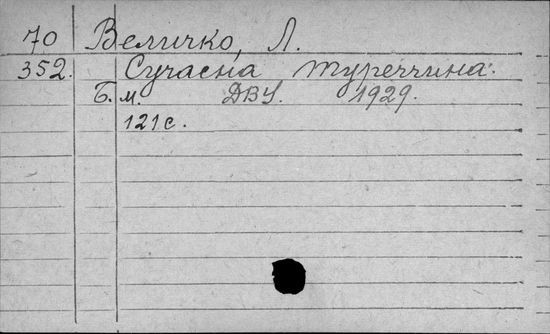 70 Величко, Л.
352. Сучасна туреччина.
Б. м. ДВУ. 1929.
121 с.